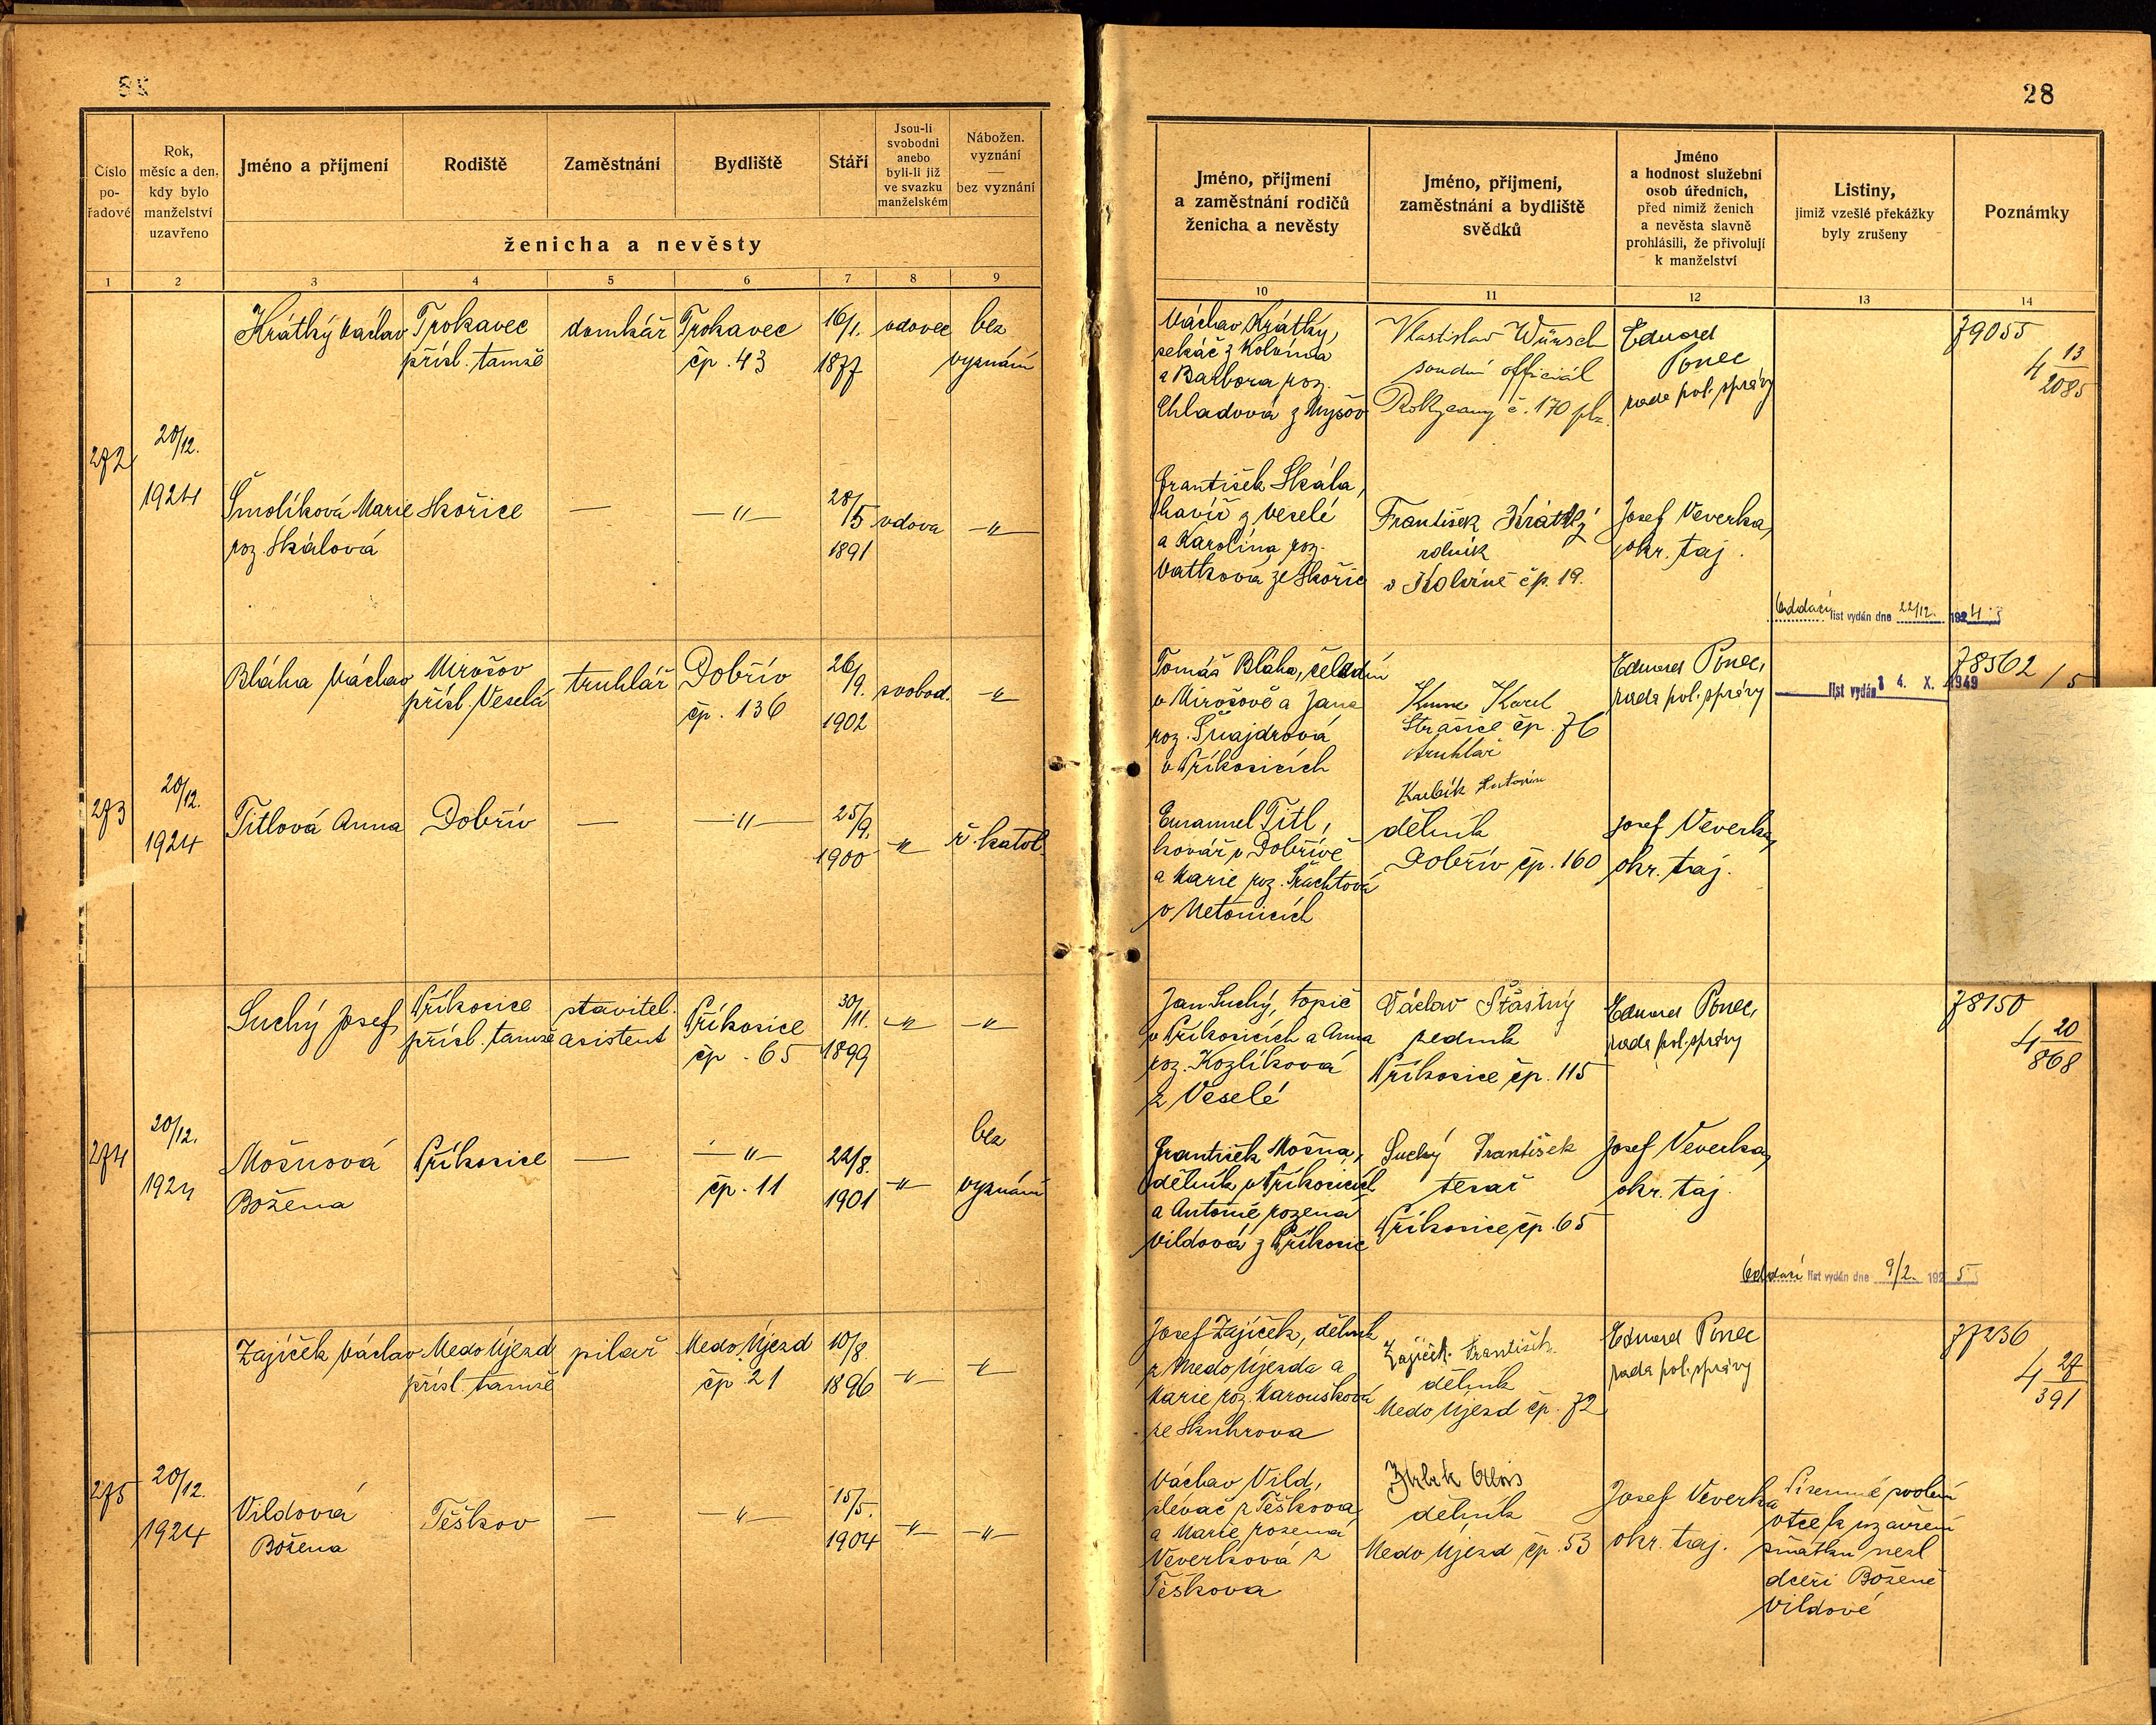 28
Číslo
po-
řadové
Rok,
měsíc a den,
kdy bylo
manželství
uzavřeno
Jméno a příjmení
Rodiště
Zaměstnání
Bydliště
Stáří
Jsou-li
svobodni
anebo
byli-li již
ve svazku
manželském
Nábožen.
vyznání
—
bez vyznání
ženicha a nevěsty
1 2 3 4 5 6 7 8 9
Jméno, příjmení
a zaměstnání rodičů
ženicha a nevěsty
Jméno, příjmení,
zaměstnání a bydliště
svědků
Jméno
a hodnost služební
osob úředních,
před nimiž ženich
a nevěsta slavně
prohlásili, že přivolují
k manželství
Listiny,
jimiž vzešlé překážky
byly zrušeny
Poznámky
10 11 12 13 14
272
20/12.
1924
Krátký Václav
Trokavec
přísl. tamže
domkář
Trokavec
čp. 43
16/1.
1877
vdovec
bez
vyznání
Šmolíková Marie
roz. Skálová
Skořice
—
—"—
28/5
1891
vdova
—"—
Václav Krátký,
sekáč z Kolvína
a Barbora roz.
Chladová z Myšov
František Skála,
havíř z Veselé
a Karolína roz.
Vatková ze Skořic
Vlastislav Wünsch
soudní officiál
Rokycany č. 170 plz.
František Krátký
rolník
v Kolvíně čp. 19.
Eduard
Ponec
rada pol. správy
Josef Veverka,
okr. taj.
Oddací list vydán dne 22/12. 1924
79055
4 13/2085
273
20/12.
1924
Bláha Václav
Mirošov
přísl. Veselá
truhlář
Dobřív
čp. 136
26/9.
1902
svobod.
—"—
Titlová Anna
Dobřív
—
—"—
25/9.
1900
—"—
ř. katol.
Tomáš Bláha, čeledín
v Mirošově a Jana
roz. Šnajdrová
v Příkosicích
Emanuel Titl,
kovář v Dobřívě
a Marie roz.
v Netonicích
Karel
Strašice čp. 76
truhlář
Antonín
dělník
Dobřív čp. 160
Eduard Ponec,
rada pol. správy
Josef Veverka,
okr. taj.
list vydán 4. X. 1949
78562
274
20/12.
1924
Suchý Josef
Příkosice
přísl. tamže
stavitel.
asistent
Příkosice
čp. 65
30/11.
1899
—"—
—"—
Mošnová
Božena
Příkosice
—
—"—
čp. 11
22/8.
1901
—"—
bez
vyznání
Jan Suchý, topič
v Příkosicích a Anna
roz. Kozlíková
z Veselé
František Mošna,
dělník v Příkosicích
a Antonie rozená
Vildová z Příkosic
Václav Šťastný
zedník
Příkosice čp. 115
Suchý František
tesař
Příkosice čp. 65
Eduard Ponec,
rada pol. správy
Josef Veverka,
okr. taj.
Oddací list vydán dne 9/2. 1925
78150
4 20/868
275
20/12.
1924
Zajíček Václav
Medo Újezd
přísl. tamže
pilař
Medo Újezd
čp. 21
10/8.
1896
—"—
—"—
Vildová
Božena
Těškov
—
—"—
15/5.
1904
—"—
—"—
Josef Zajíček, dělník
z Medo Újezda a
Marie roz. Maroušková
ze Skuhrova
Václav Vild,
slevač z Těškova
a Marie rozená
Veverková z
Těškova
Zajíček František
dělník
Medo Újezd čp. 72
Alois
dělník
Medo Újezd čp. 53
Eduard Ponec
rada pol. správy
Josef Veverka
okr. taj.
Písemné svolení
otce k uzavření
sňatku nezl
dceři Boženě
Vildové
77236
4 27/391